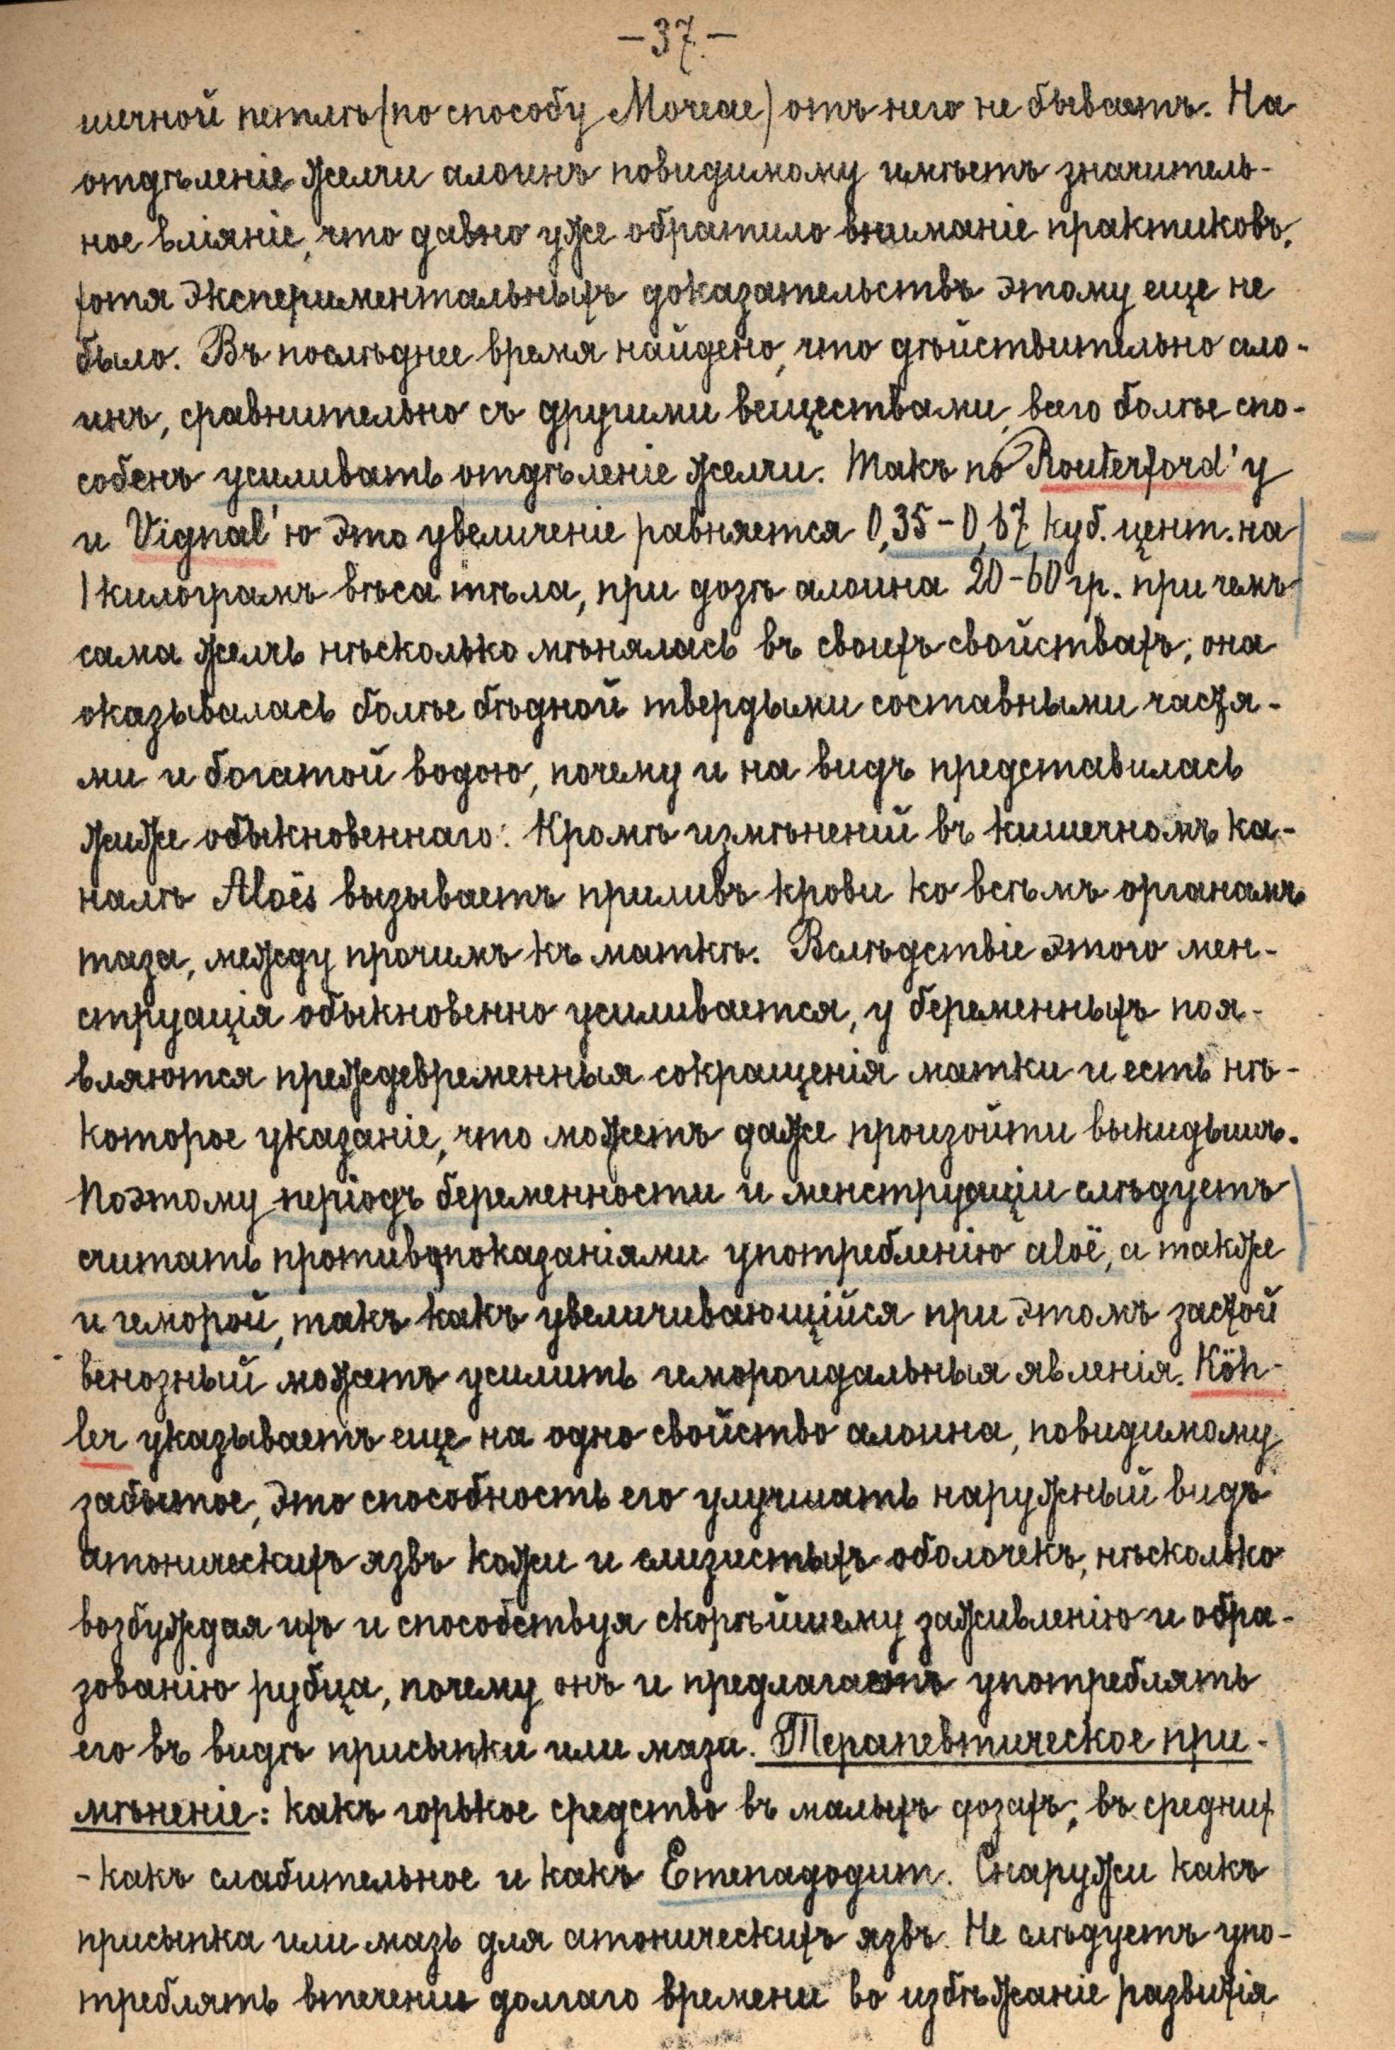 -37.-
шечной петлѣ (по способу Moreae) отъ него не бываетъ. На
отдѣленіе желчи алоинъ повидимому имѣетъ значитель-
ное вліяніе, что давно уже обратило вниманіе практиковъ,
хотя экспериментальныхъ доказательствъ этому еще не
было. Въ послѣднее время найдено, что дѣйствительно ало-
инъ, сравнительно съ другими веществами, всего болѣе спо-
собенъ усиливать отдѣленіе желчи. Такъ по Routerford'у
и Vignal'ю это увеличеніе равняется 0,35-0,67 куб. цент. на
1 килограмъ вѣса тѣла, при дозѣ алоина 20-60 гр. при чемъ
сама желчь нѣсколько мѣнялась въ своихъ свойствахъ; она
оказывалась болѣе бѣдной твердыми составными частя-
ми и богатой водою, почему и на видъ представилась
жиже обыкновеннаго. Кромѣ измѣненій въ кишечномъ ка-
налѣ Aloës вызываетъ приливъ крови ко всѣмъ органамъ
таза, между прочимъ къ маткѣ. Вслѣдствіе этого мен-
струація обыкновенно усиливается, у беременныхъ поя-
вляются преждевременныя сокращенія матки и есть нѣ-
которое указаніе, что можетъ даже произойти выкидышъ.
Поэтому періодъ беременности и менструаціи слѣдуетъ
считать противопоказаніями употребленію aloё, а также
и геморой, такъ какъ увеличивающійся при этомъ застой
венозный можетъ усилить гемороидальныя явленія. Köh-
ler указываетъ еще на одно свойство алоина, повидимому
забытое, это способность его улучшать наружный видъ
атоническихъ язвъ кожи и слизистыхъ оболочекъ, нѣсколько
возбуждая ихъ и способствуя скорѣйшему заживленію и обра-
зованію рубца, почему онъ и предлагаетъ употреблять
его въ видѣ присыпки или мази. Терапевтическое при-
мѣненіе: какъ горькое средство въ малыхъ дозахъ, въ средних
-какъ слабительное и какъ Emenagogum. Снаружи какъ
присыпка или мазь для атоническихъ язвъ. Не слѣдуетъ упо-
треблять втеченіи долгаго времени во избѣжаніе развитія